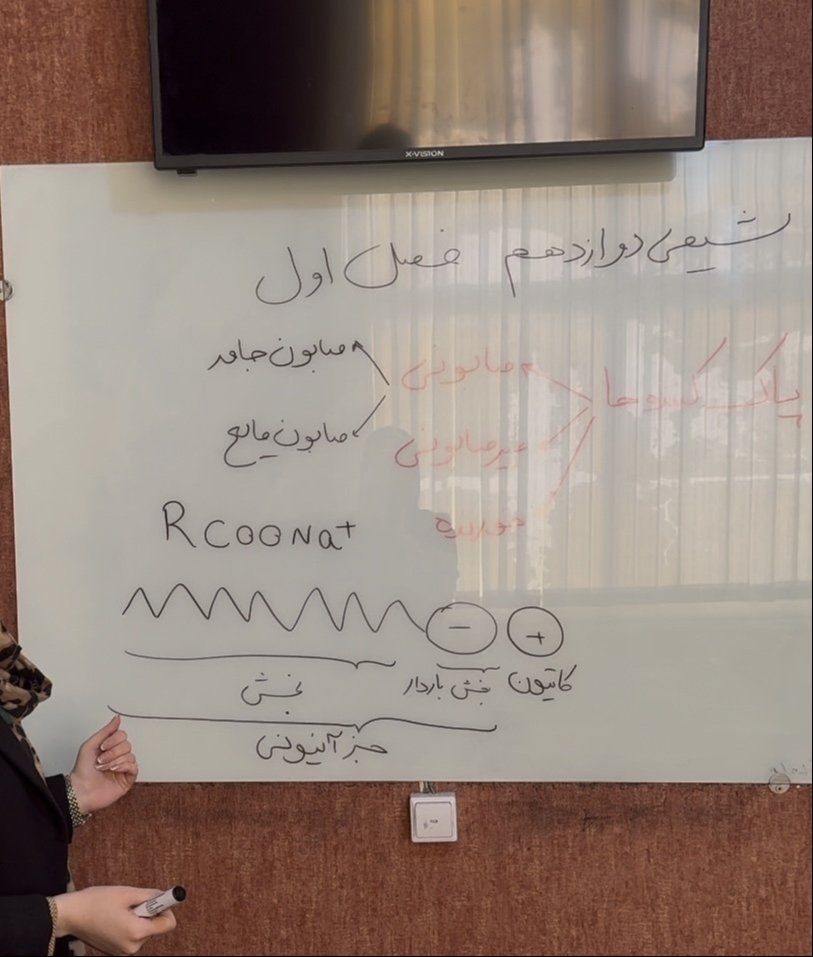 X-VISION
شیمی دوازدهم فصل اول
پاک کننده ها
صابونی
غیرصابونی
خورنده
صابون جامد
صابون مایع
RCOONa+
- +
بخش بخش باردار کاتیون
جز آنیونی